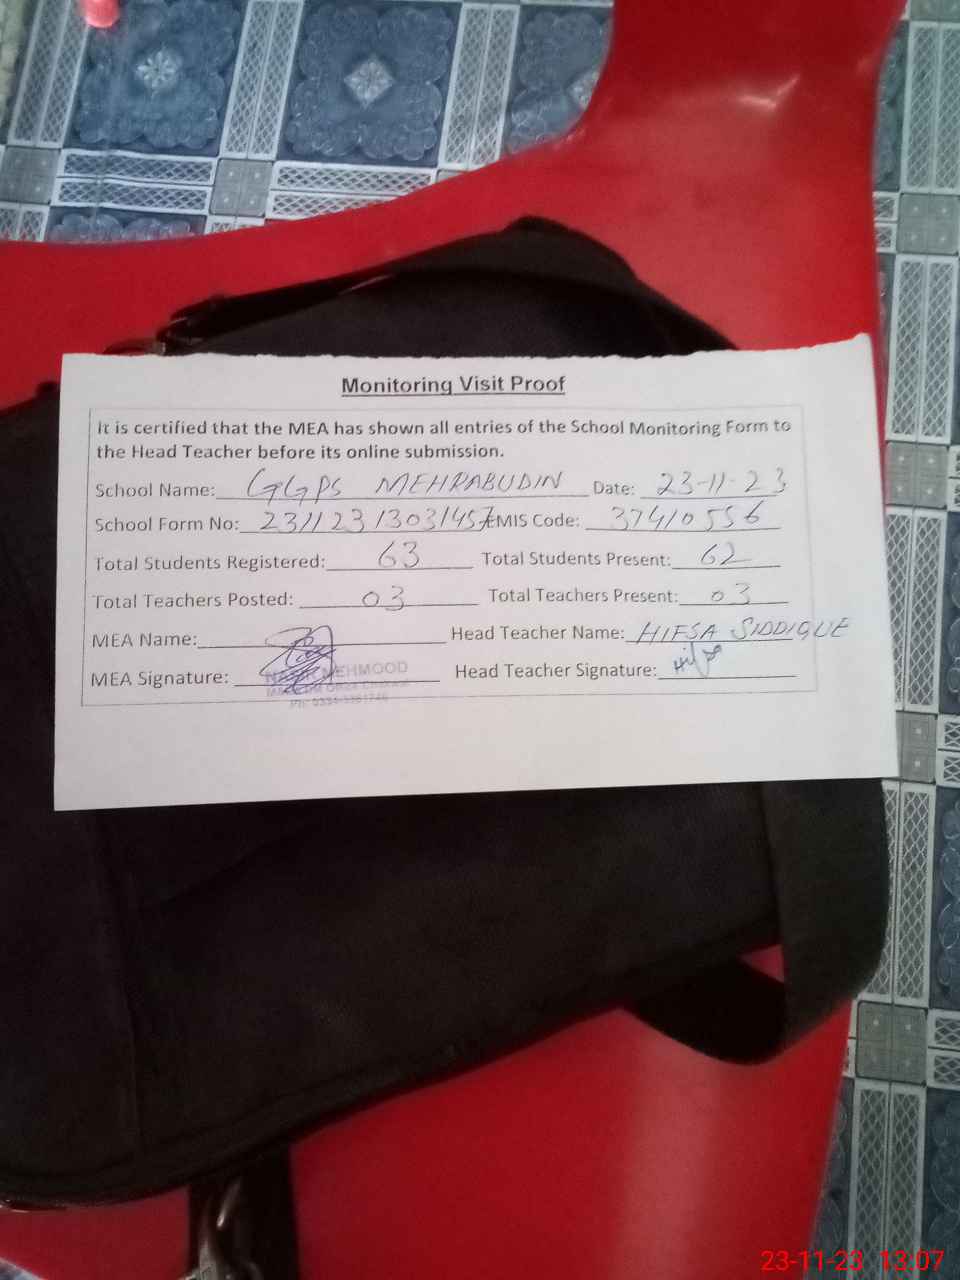 Monitoring Visit Proof
It is certified that the MEA has shown all entries of the School Monitoring Form to
the Head Teacher before its online submission.
School Name: GGPS MEHRABUDIN Date: 23-11-23
School Form No: 23112313031457 EMIS Code: 37410556
Total Students Registered: 63 Total Students Present: 62
Total Teachers Posted: 03 Total Teachers Present: 03
MEA Name: Head Teacher Name: HIFSA SIDDIQUE
MEA Signature: MEHMOOD Head Teacher Signature: Hifsa
23-11-23 13:07